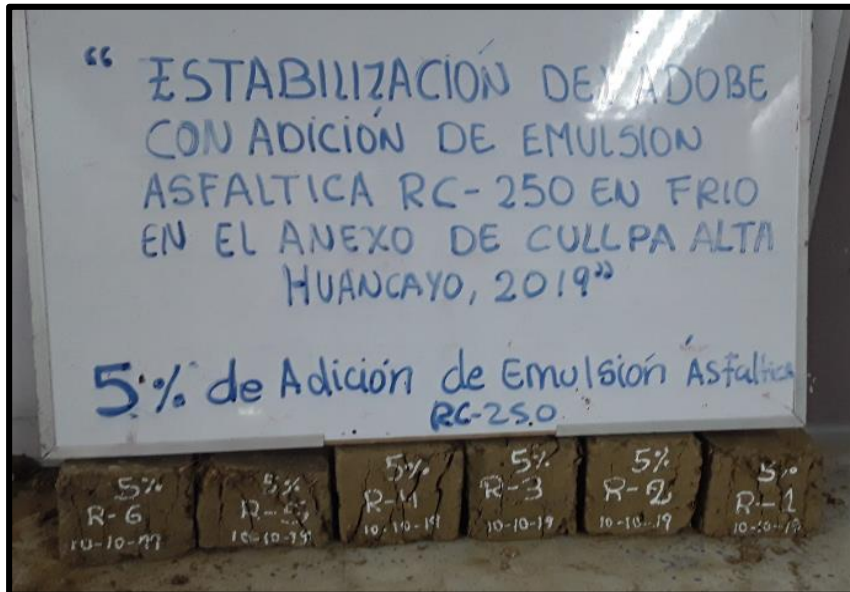 “ ESTABILIZACIÓN DEL ADOBE
CON ADICIÓN DE EMULSION
ASFALTICA RC-250 EN FRIO
EN EL ANEXO DE CULLPA ALTA
HUANCAYO, 2019”
5% de Adición de Emulsión Asfaltica
RC-250
5%
R-6
10-10-19
5%
R-5
10-10-19
5%
R-4
10-10-19
5%
R-3
10-10-19
5%
R-2
10-10-19
5%
R-1
10-10-19